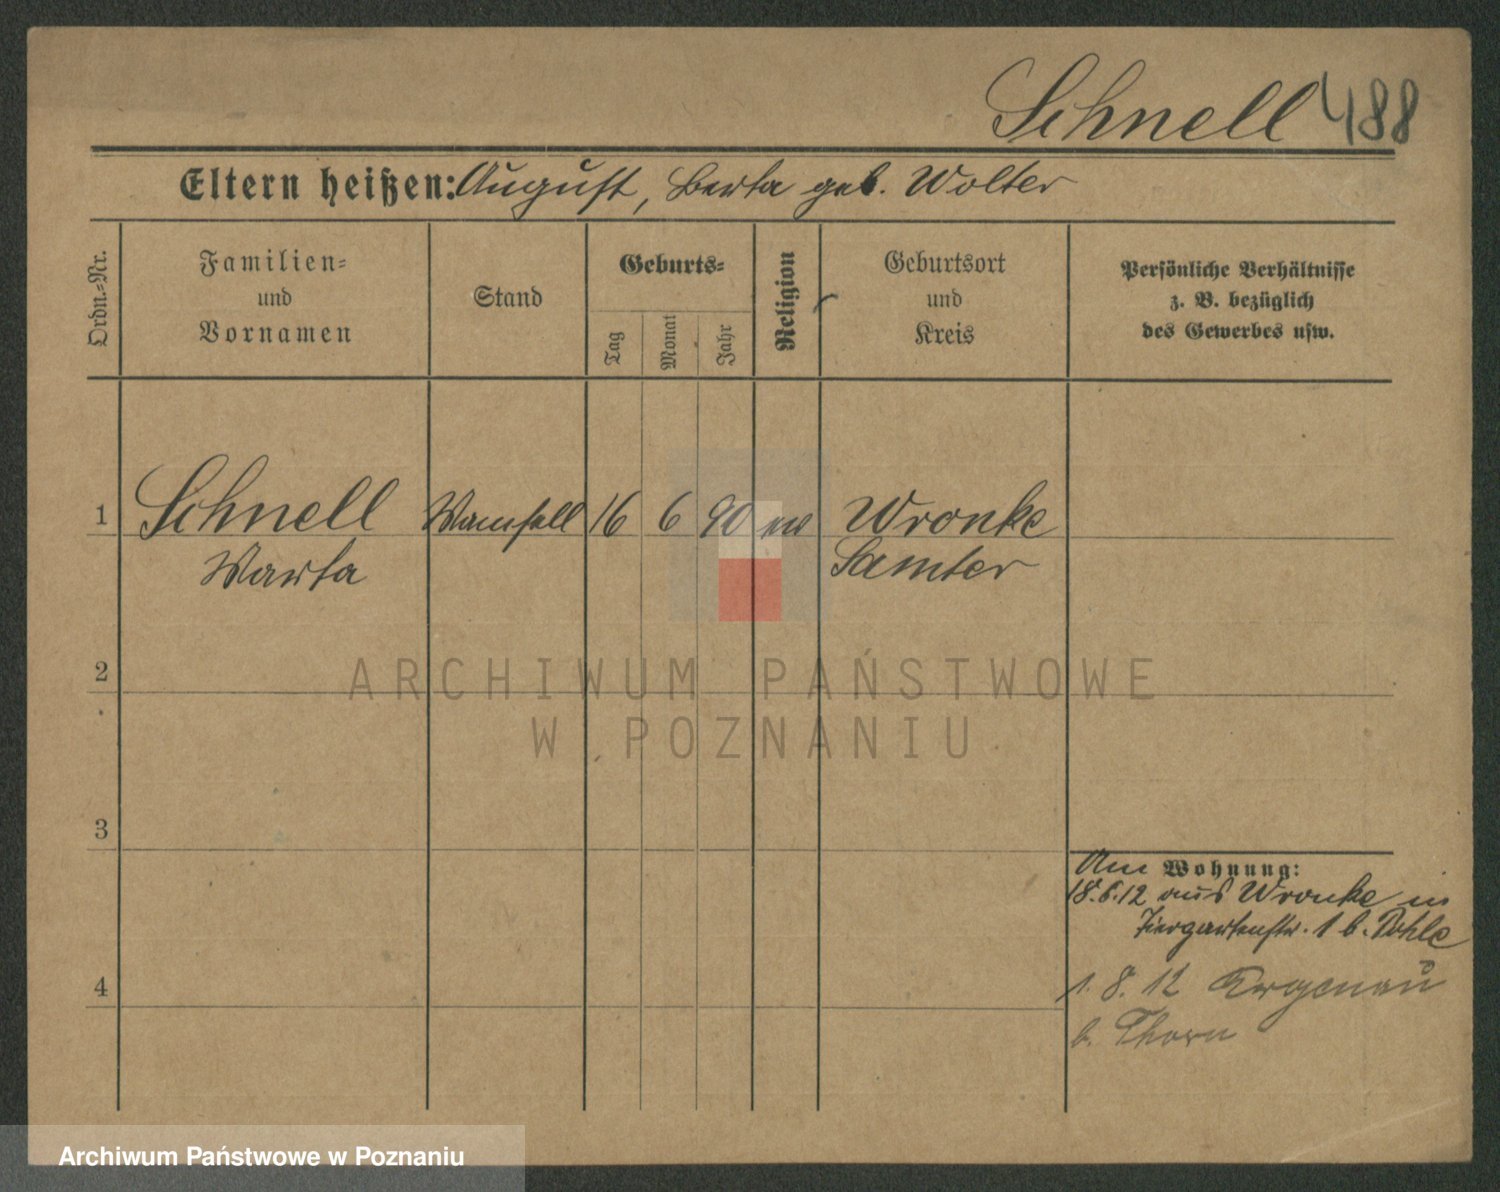 Schnell 488
Eltern heißen: August, Berta geb. Wolter
Ordn.-Nr.
Familien-
und
Vornamen
Stand
Geburts-
Tag
Monat
Jahr
Religion
Geburtsort
und
Kreis
Persönliche Verhältnisse
z. B. bezüglich
des Gewerbes usw.
1 Schnell Mamsell 16 6 90 ev Wronke
Marta Samter
2
3
4
Am Wohnung:
18.6.12 aus Wronke in
Tiergartenstr. 1 b.
1. 8. 12 Argenau
b. Thorn
ARCHIWUM PAŃSTWOWE
W POZNANIU
Archiwum Państwowe w Poznaniu